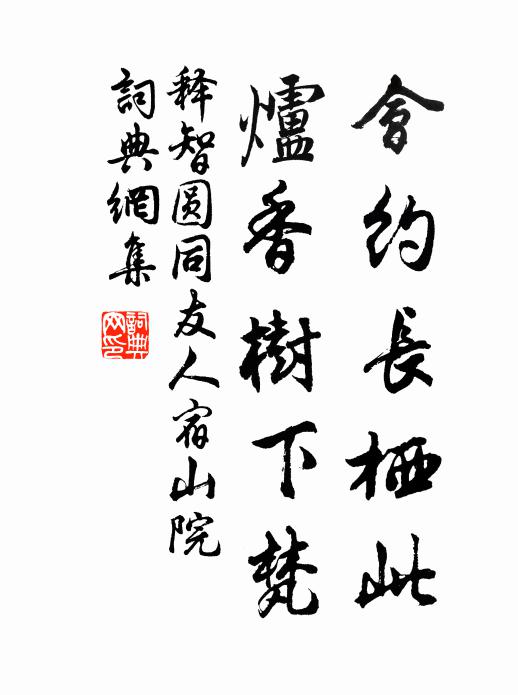 會約長栖此
爐香樹下焚
释智圆同友人宿山院
詞典網集
詞典網印